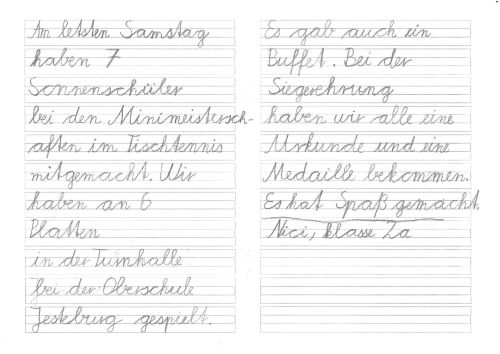 Am letzten Samstag
haben 7
Sonnenschüler
bei den Minimeistersch-
aften im Tischtennis
mitgemacht. Wir
haben an 6
Platten
in der Turnhalle
bei der Oberschule
Jesteburg gespielt.
Es gab auch ein
Buffet. Bei der
Siegerehrung
haben wir alle eine
Urkunde und eine
Medaille bekommen.
Es hat Spaß gemacht.
Nici, klasse 2a